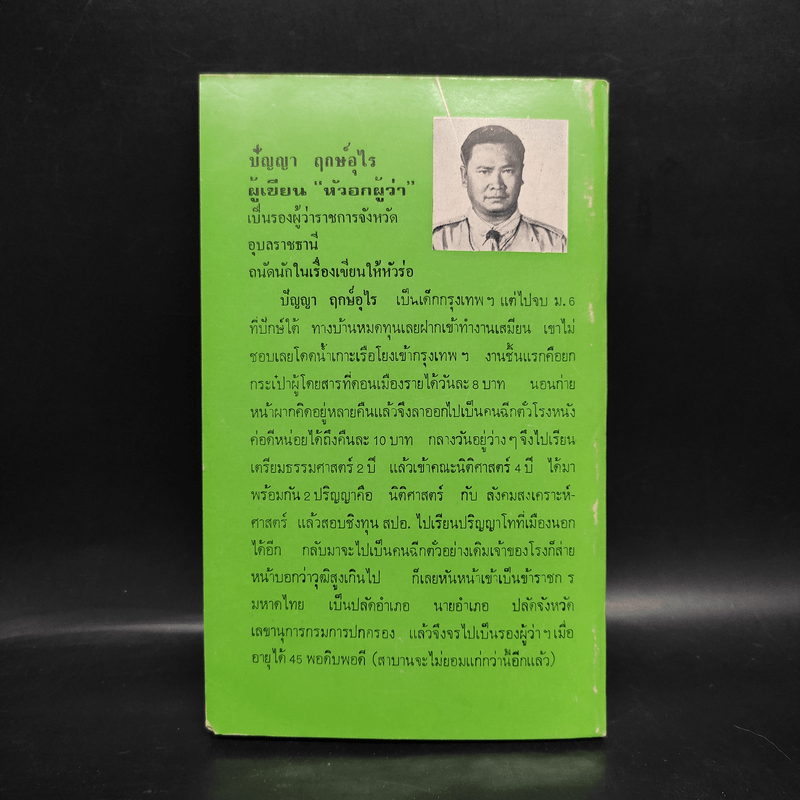 ปัญญา ฤกษ์อุไร
ผู้เขียน "หัวอกผู้ว่า"
เป็นรองผู้ว่าราชการจังหวัด
อุบลราชธานี
ถนัดนักในเรื่องเขียนให้หัวร่อ
ปัญญา ฤกษ์อุไร เป็นเด็กกรุงเทพฯ แต่ไปจบ ม. 6
ที่ปักษ์ใต้ ทางบ้านหมดทุนเลยฝากเข้าทำงานเสมียน เขาไม่
ชอบเลยโดดน้ำเกาะเรือโยงเข้ากรุงเทพฯ งานชิ้นแรกคือยก
กระเป๋าผู้โดยสารที่ดอนเมืองรายได้วันละ 8 บาท นอนก่าย
หน้าผากคิดอยู่หลายคืนแล้วจึงลาออกไปเป็นคนฉีกตั๋วโรงหนัง
ค่อดีหน่อยได้ถึงคืนละ 10 บาท กลางวันอยู่ว่าง ๆ จึงไปเรียน
เตรียมธรรมศาสตร์ 2 ปี แล้วเข้าคณะนิติศาสตร์ 4 ปี ได้มา
พร้อมกัน 2 ปริญญาคือ นิติศาสตร์ กับ สังคมสงเคราะห์-
ศาสตร์ แล้วสอบชิงทุน สปอ. ไปเรียนปริญญาโทที่เมืองนอก
ได้อีก กลับมาจะไปเป็นคนฉีกตั๋วอย่างเดิมเจ้าของโรงก็ส่าย
หน้าบอกว่าวุฒิสูงเกินไป ก็เลยหันหน้าเข้าเป็นข้าราชก ร
มหาดไทย เป็นปลัดอำเภอ นายอำเภอ ปลัดจังหวัด
เลขานุการกรมการปกครอง แล้วจึงจรไปเป็นรองผู้ว่า ฯ เมื่อ
อายุได้ 45 พอดิบพอดี (สาบานจะไม่ยอมแก่กว่านี้อีกแล้ว)